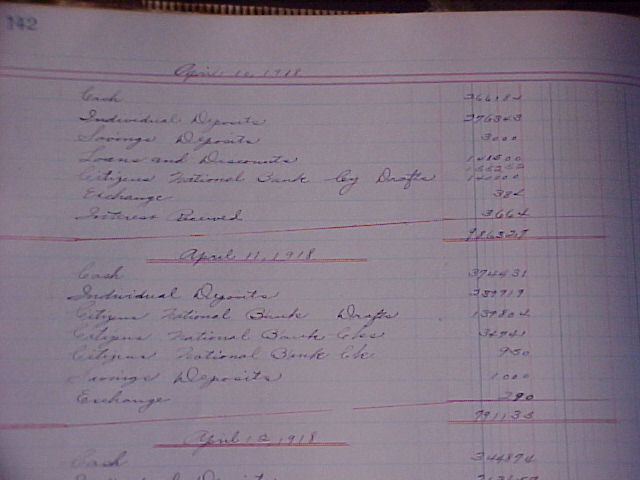 142
April 10, 1918
Cash 366184
Individual Deposits 276343
Savings Deposits 3000
Loans and Discounts 141500
Citizens National Bank by Drafts 140000
Exchange 384
Interest Received 3664
986327
April 11, 1918
Cash 374431
Individual Deposits 239919
Citizens National Bank Drafts 139804
Citizens National Bank Cks 34941
Citizens National Bank Ck 950
Savings Deposits 1000
Exchange 290
791133
April 12, 1918
Cash 344874